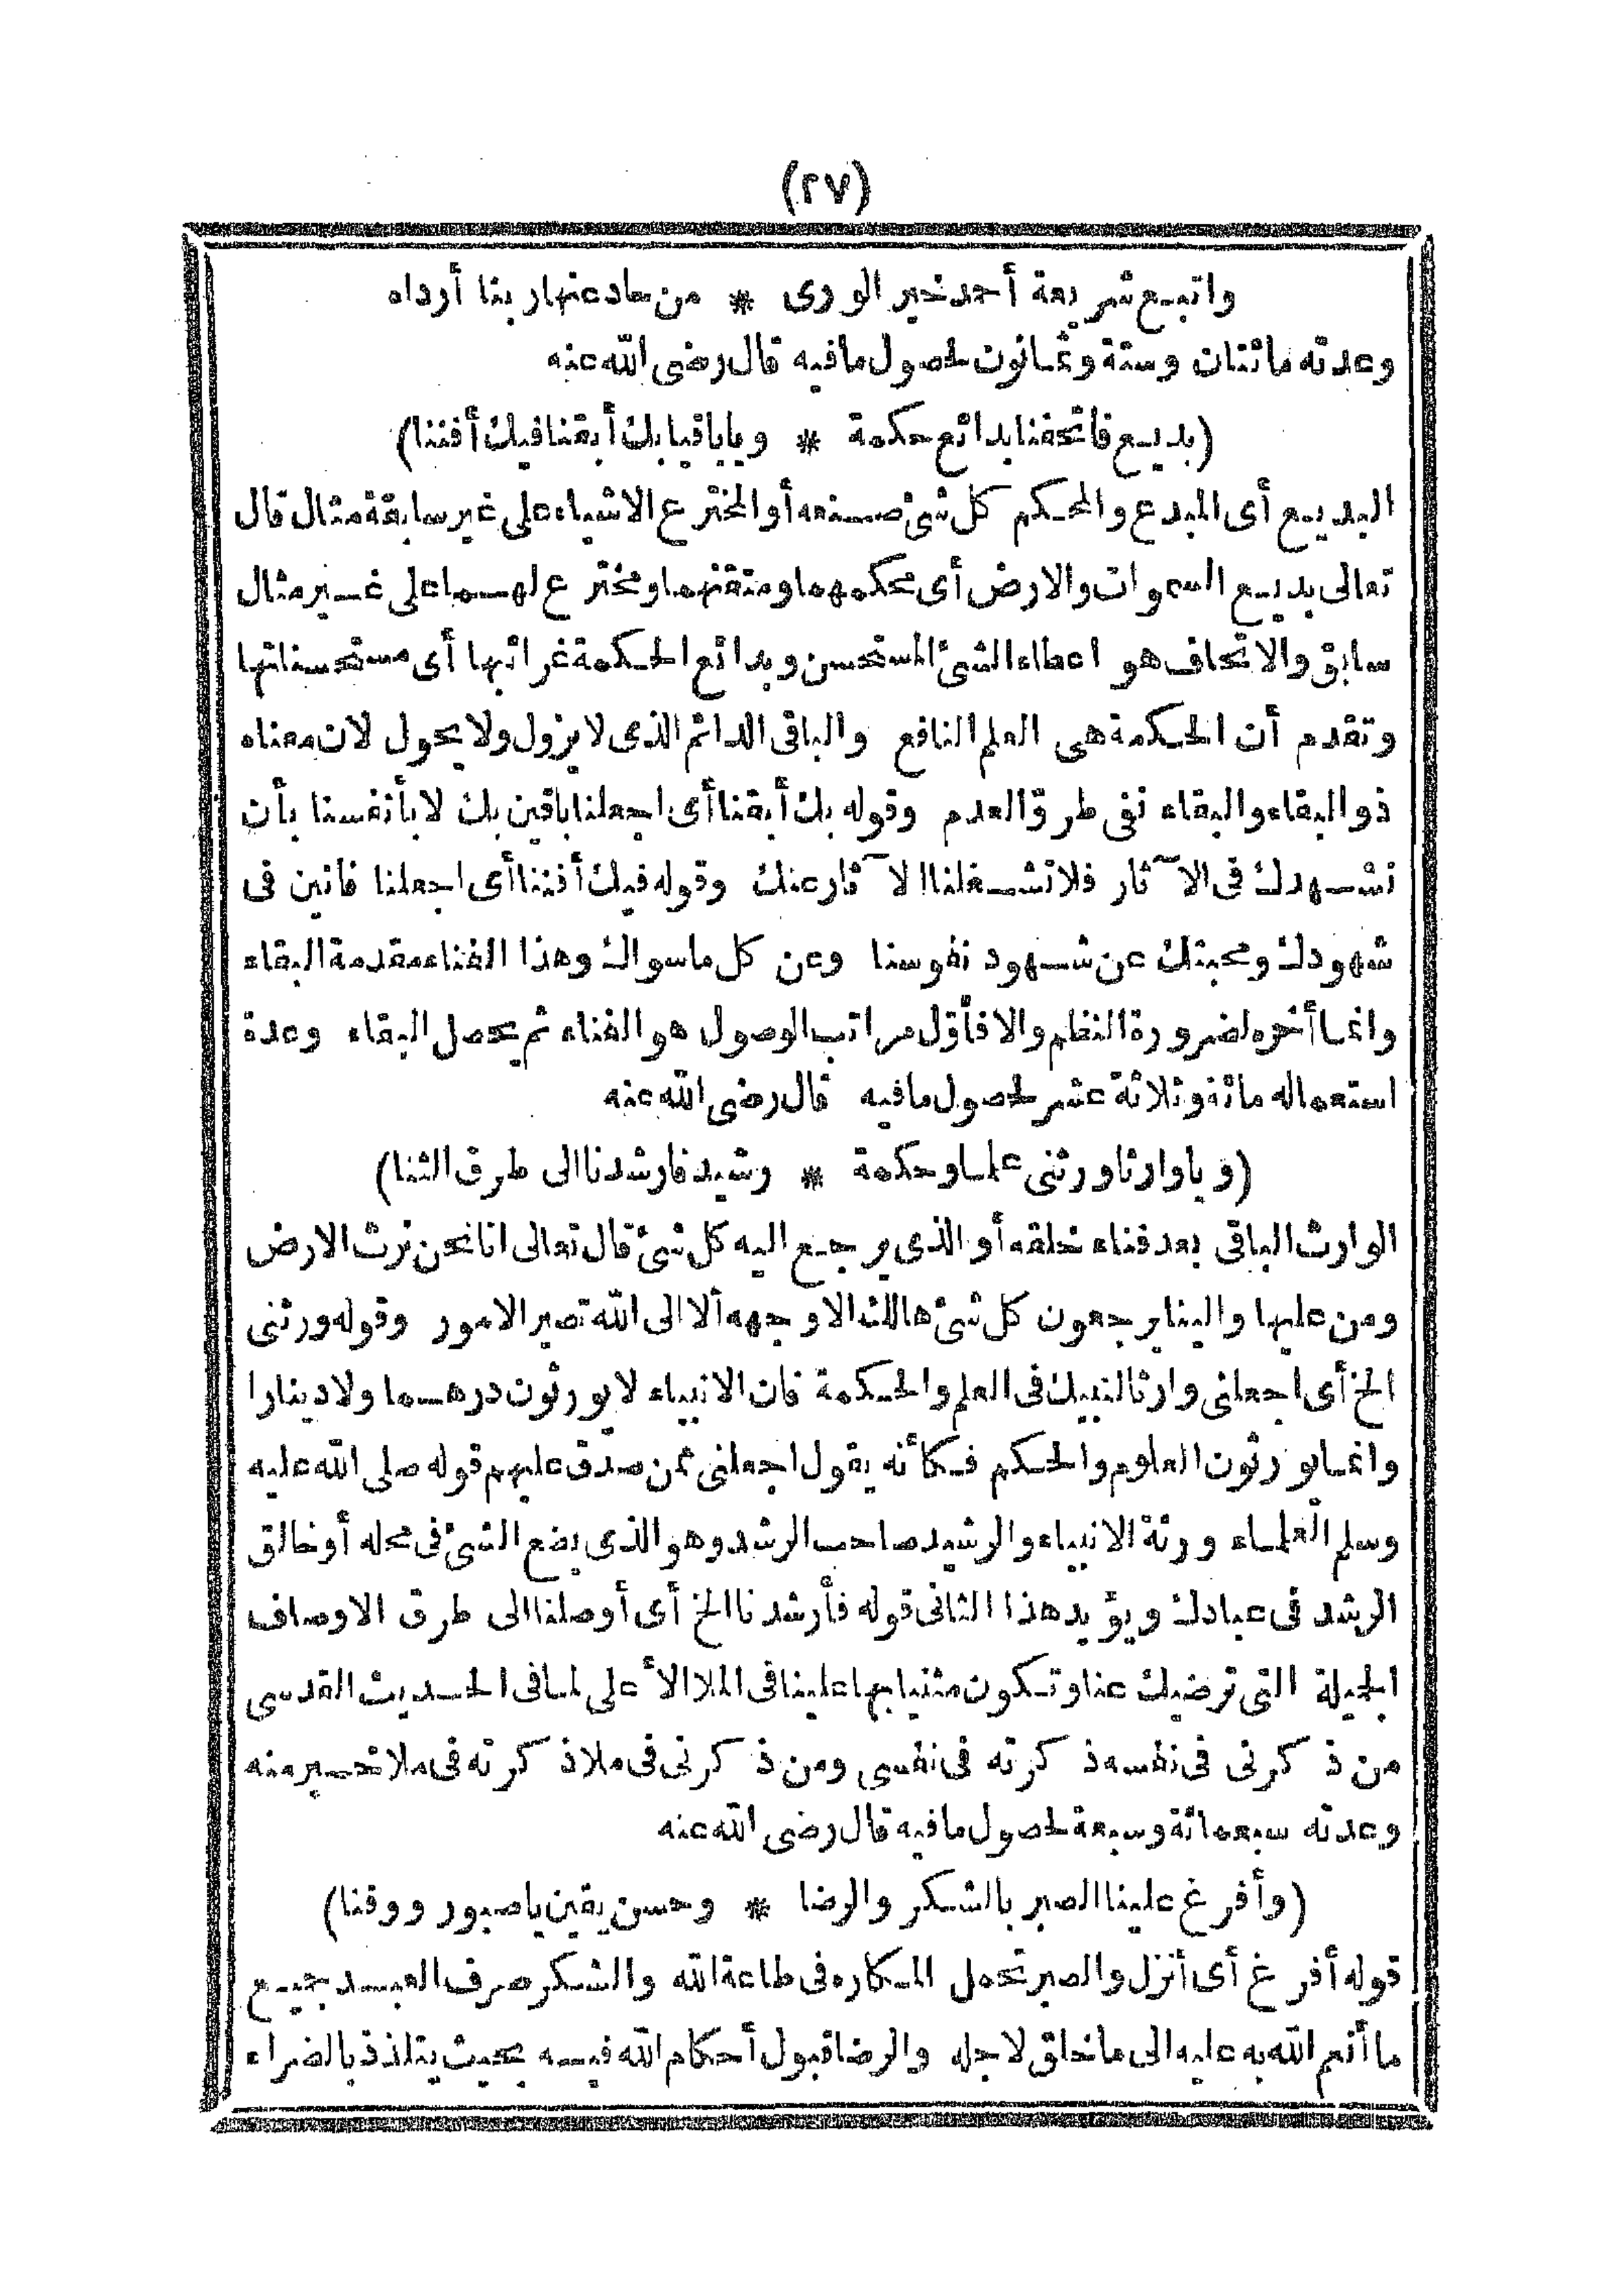 (٢٧)
واتبع شريعة أحمد خير الورى * من حاد عنها ربنا أرداه
وعدته مائتان وستة وثمانون لحصول مافيه قال رضى الله عنه
(بديع فاتحفنا بدائع حكمة * ويا باقيا بك أبقنا فيك أفننا)
البديع أى المبدع والمحكم كل شئ صنعه أو المخترع الاشياء على غير سابقة مثال قال
تعالى بديع السموات والارض أى محكمهما ومتقنهما ومخترع لهما على غير مثال
سابق والاتحاف هو اعطاء الشئ المستحسن وبدائع الحكمة غرائبها أى مستحسناتها
وتقدم أن الحكمة هى العلم النافع والباقى الدائم الذى لا يزول ولا يحول لان معناه
ذو البقاء والبقاء نفى طروّ العدم وقوله بك أبقنا أى اجعلنا باقين بك لا بأنفسنا بأن
نشهدك فى الآثار فلا تشغلنا الآثار عنك وقوله فيك أفننا أى اجعلنا فانين فى
شهودك ومحبتك عن شهود نفوسنا وعن كل ماسواك وهذا الفناء مقدمة البقاء
وانما أخره لضرورة النظم والا فأوّل مراتب الوصول هو الفناء ثم يحصل البقاء وعدة
استعماله مائة وثلاثة عشر لحصول مافيه قال رضى الله عنه
(ويا وارثا ورثنى علما وحكمة * رشيد فارشدنا الى طرق الثنا)
الوارث الباقى بعد فناء خلقه أو الذى يرجع اليه كل شئ قال تعالى انا نحن نرث الارض
ومن عليها والينا يرجعون كل شئ هالك الا وجهه ألا الى الله تصير الامور وقوله ورثنى
الخ أى اجعلنى وارثا لنبيك فى العلم والحكمة فان الانبياء لا يورثون درهما ولا دينارا
وانما يورثون العلوم والحكم فكأنه يقول اجعلنى ممن صدق عليهم قوله صلى الله عليه
وسلم العلماء ورثة الانبياء والرشيد صاحب الرشد وهو الذى يضع الشئ فى محله أو خالق
الرشد فى عبادك ويؤيد هذا الثانى قوله فأرشدنا الخ أى أوصلنا الى طرق الاوصاف
الجميلة التى ترضيك عنا وتكون مثنيا بها علينا فى الملا الأعلى لما فى الحديث القدسى
من ذكرنى فى نفسه ذكرته فى نفسى ومن ذكرنى فى ملا ذكرته فى ملا خير منه
وعدته سبعمائة وسبعة لحصول مافيه قال رضى الله عنه
(وأفرغ علينا الصبر بالشكر والرضا * وحسن يقين يا صبور ووفنا)
قوله أفرغ أى أنزل والصبر تحمل المكاره فى طاعة الله والشكر صرف العبد جميع
ما أنعم الله به عليه الى ما خلق لاجله والرضا قبول أحكام الله فيه بحيث يتلذذ بالضراء